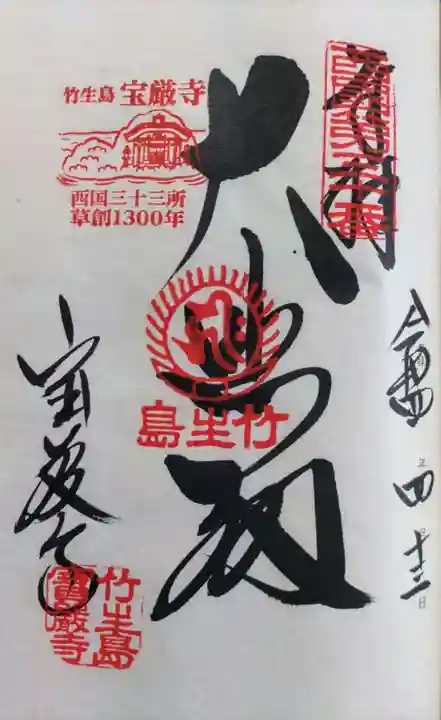 奉拝
西国第三十番
令和四年四月十三日
大悲殿
竹生島
竹生島 宝厳寺
西国三十三所
草創1300年
宝厳寺
竹生島
寶厳寺